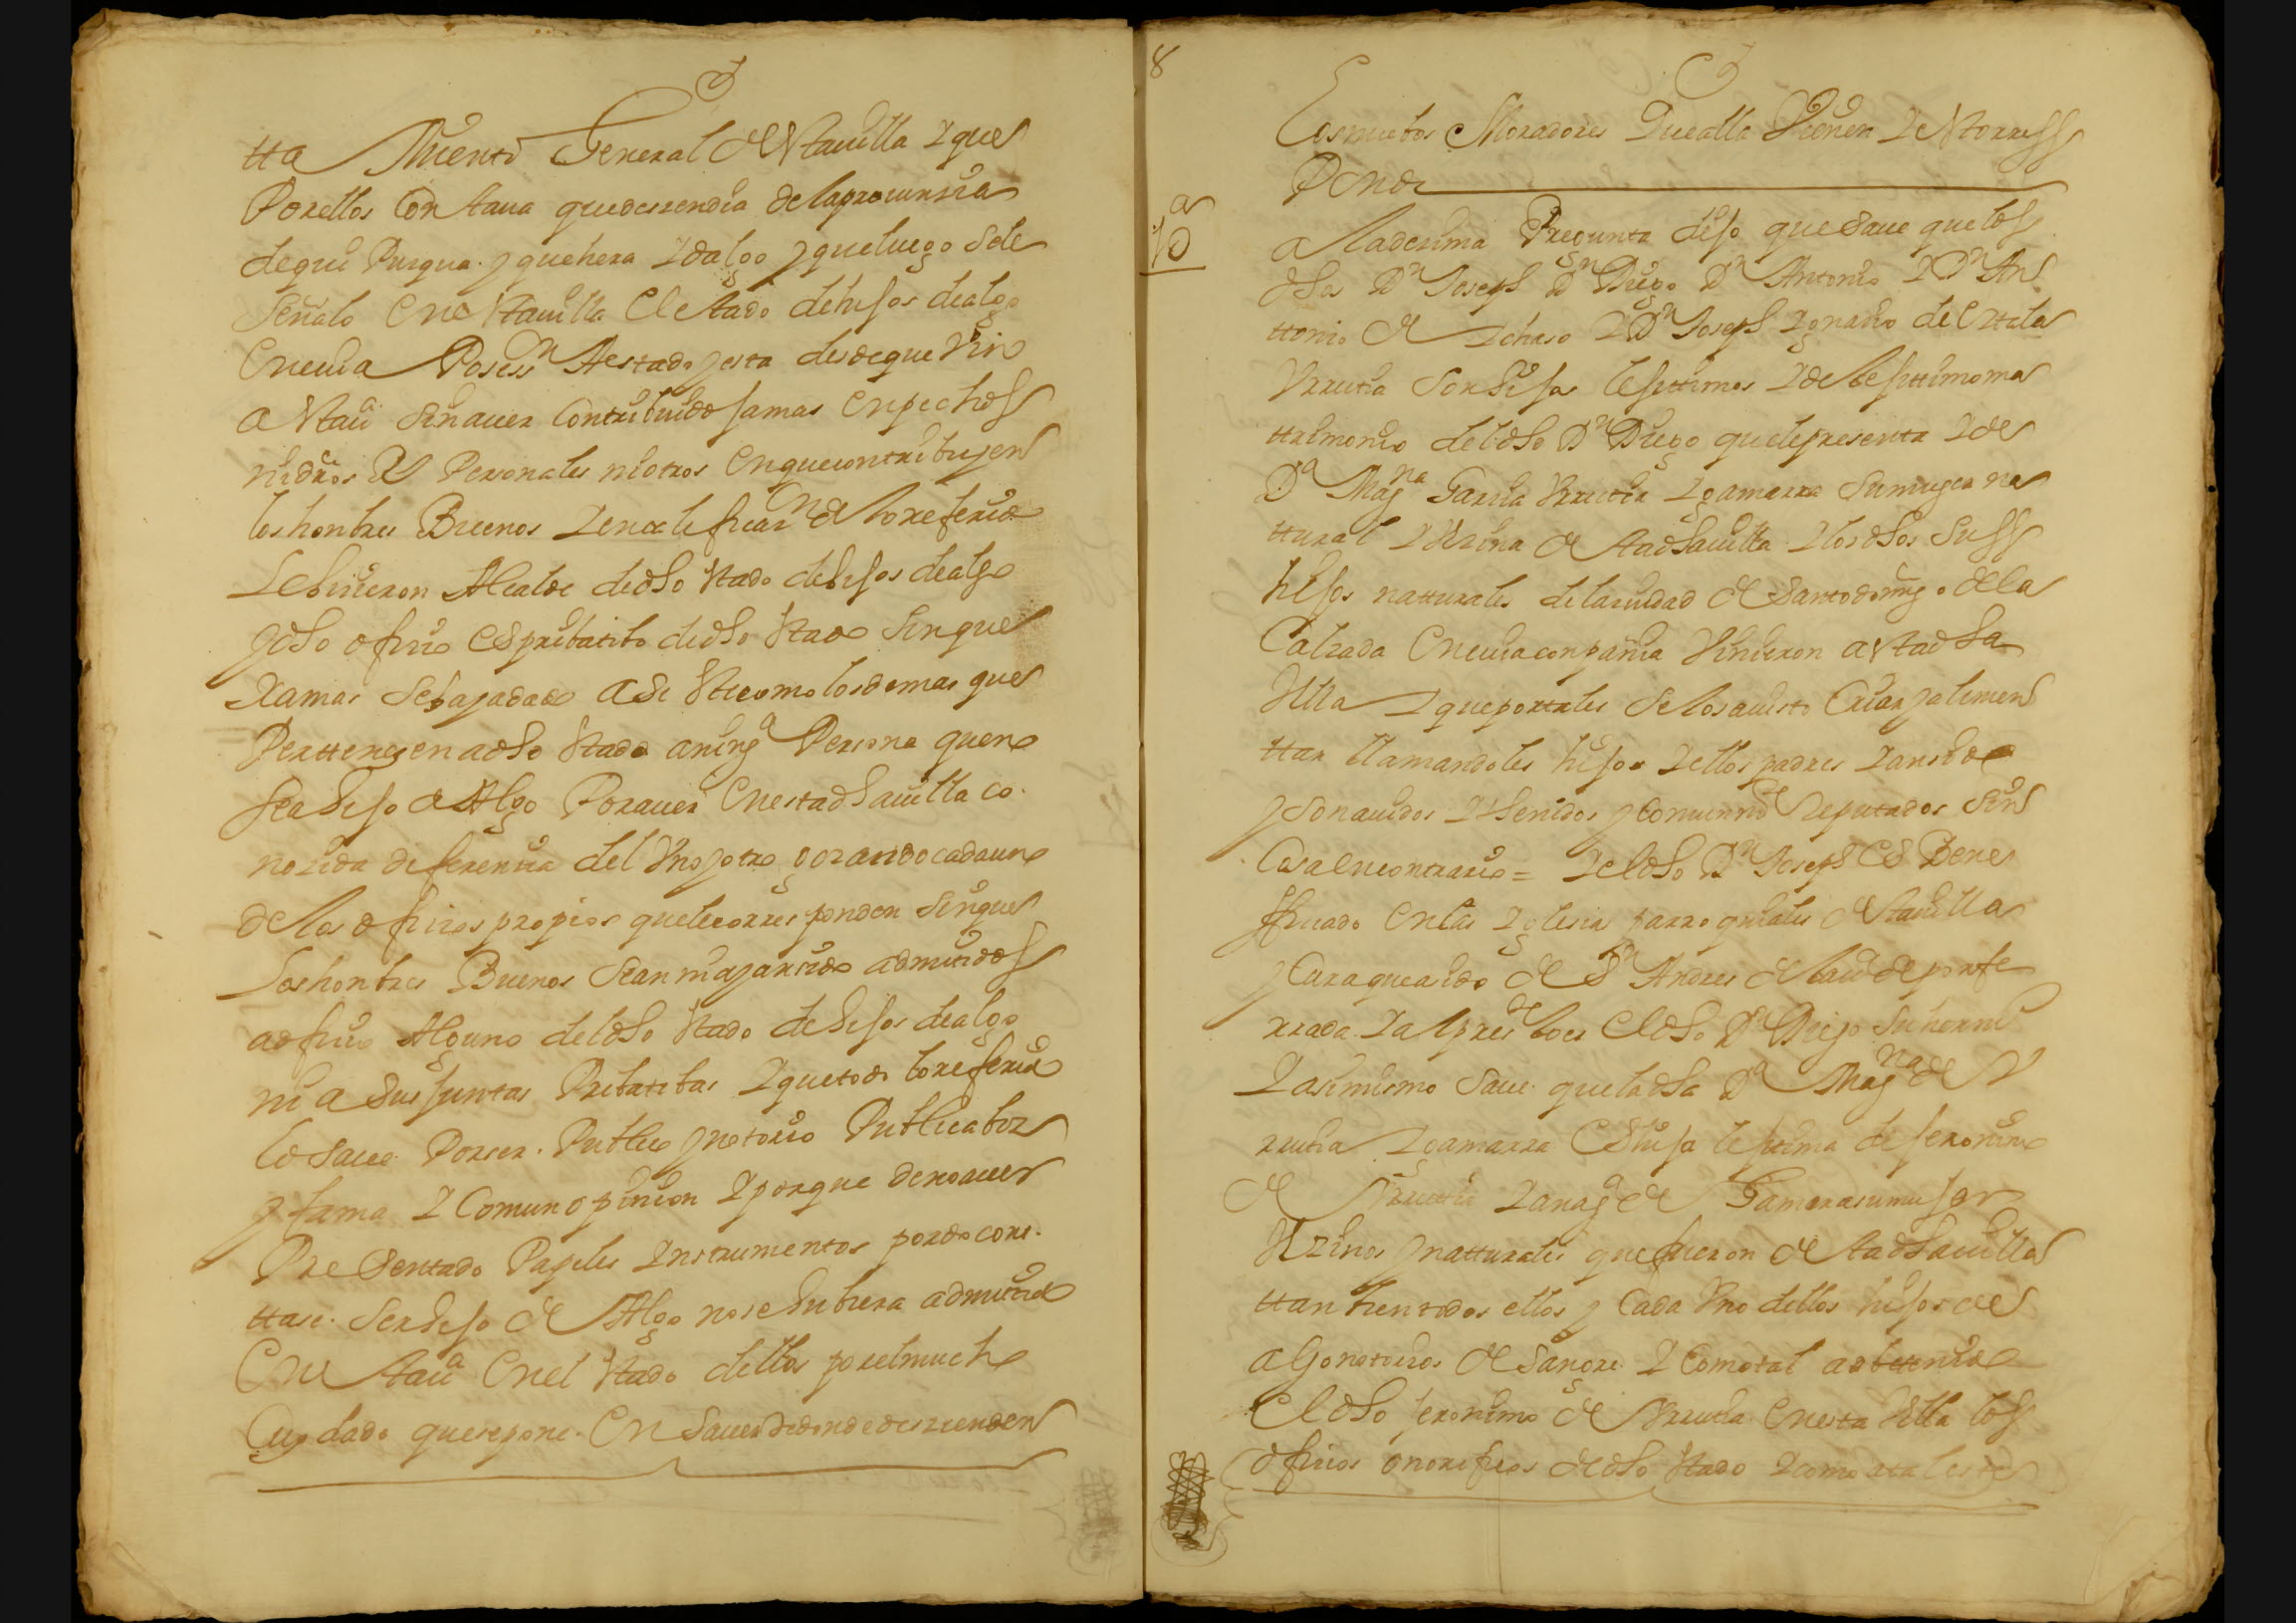 tta Miento General de Stauilla y que
Por ellos Constaua que deszendia de la prouinzia
de guipuzqua. y que hera Idalgo y que luego se le
Señalo En esta uilla El estado de hijos dealgo
En cuia Posess.n A estado y esta desde que Vino
a Sta uª Sin auer Contribuido jamas En pechos
ni drõs Rs Personales ni otros En que contribuyen
los honbres Buenos y en calificaz.n de lo referido
Le hizieron Alcalde de dho Stado de hijos dealgo
y dho ofizio Es pribatibo de dho Stado Sin que
Xamas Se haya dado a Si Ste como los demas que
Perttenezen a dho Stado a ning.ª Persona que no
sea hijo de Algo Por auer En esta dha uilla co.
nozida diferenzia del Vno y otro gozando cada uno
de los ofizios propios que le corresponden Sin que
Los honbres Buenos Sean ni ayan sido admitidos
a ofizio Alguno del dho Stado de hijos dealgo
ni a Sus juntas Pribatibas y que todo lo referido
lo Saue Por ser. Publico y notorio Publica boz
y fama y Comun opinion y porque de no auer
Pre Sentado Papeles Instrumentos por do cons.
ttase. Ser hijo de Algo no se hubiera admitido
En Sta uª En el Stado dellos por el mucho
Cuydado que se pone. En Sauer de donde deszienden
8
Los nuebos Moradores Que alla Vienen y esto rress
Ponde
10ª
a la dezima Pregunta dijo que Saue que los
dhos Dn Joseph Dn Diego Dn Antonio y Dn An
ttonio de ychaso y Dn Joseph Ygnazio de Ettala
Vrrutia Son hijos lexittimos y de lexittimo ma
ttrimonio del dho Dn Diego que le presenta y de
Dª Mag.na Garzia Vrrutia ygamarra Su muger na
ttural y Vezina de Sta dha uilla y los dhos Suss
hijos natturales de la ziudad de Santo domingo de la
Calzada En cuia conpañia Vinieron a Sta dha
Villa y que por tales Se los a uisto Criar y alimen
ttar llamandoles hijos y ellos padres y an sido
y Son auidos y thenidos y Comun.te Reputados Sin
Cosa en contrario = y el dho Dn Joseph Es Bene
ffiziado En las Yglesias parroquiales de Sta uilla
y Cura que a sido de Sn Andres de la uª de ponfe
rrada. y al pres.te lo es El dho Dn Diego Su herm.º
y asimismo Saue que la dha Dª Mag.na de V
rrutia ygamarra Es hija lexitima de jeronimo
de Vrrutia y an.ª de Gamarra su mujer
Vezinos y natturales que fueron de Sta dha uilla
ttan bien todos ellos y Cada Vno dellos hijos de
algo notorios de Sangre y Como tal a obttenido
El dho jeronimo de Vrrutia En esta Villa los
ofizios onorificos de dho Stado y como a tales se